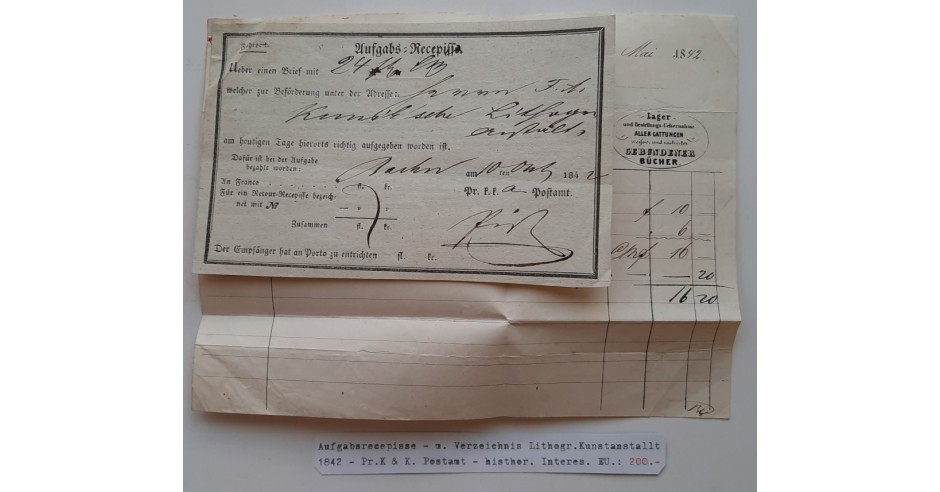 Aufgabs-Recepisse.
Ueber einen Brief mit 24 fl.
welcher zur Beförderung unter der Adresse: Herrn
Lithogr
Anstalt
am heutigen Tage hierorts richtig aufgegeben worden ist.
Dafür ist bei der Aufgabe
bezahlt worden:
am 10 ten 1842
An Franco . . . . . fl. kr.
Pr. k. k. Postamt.
Für ein Retour-Recepisse bezeich-
net mit № — " "
Zusammen fl. kr.
Der Empfänger hat an Porto zu entrichten fl. kr.
Mai 1842.
Lager
und Bestellungs-Uebernahme
ALLER GATTUNGEN
GEBUNDENER
BÜCHER.
f 10 —
" 6 —
16 —
— 20
16 20
Aufgabsrecepisse - m. Verzeichnis Lithogr.Kunstanstallt
1842 - Pr.K & K. Postamt - histhor. Interes. EU.: 200.-